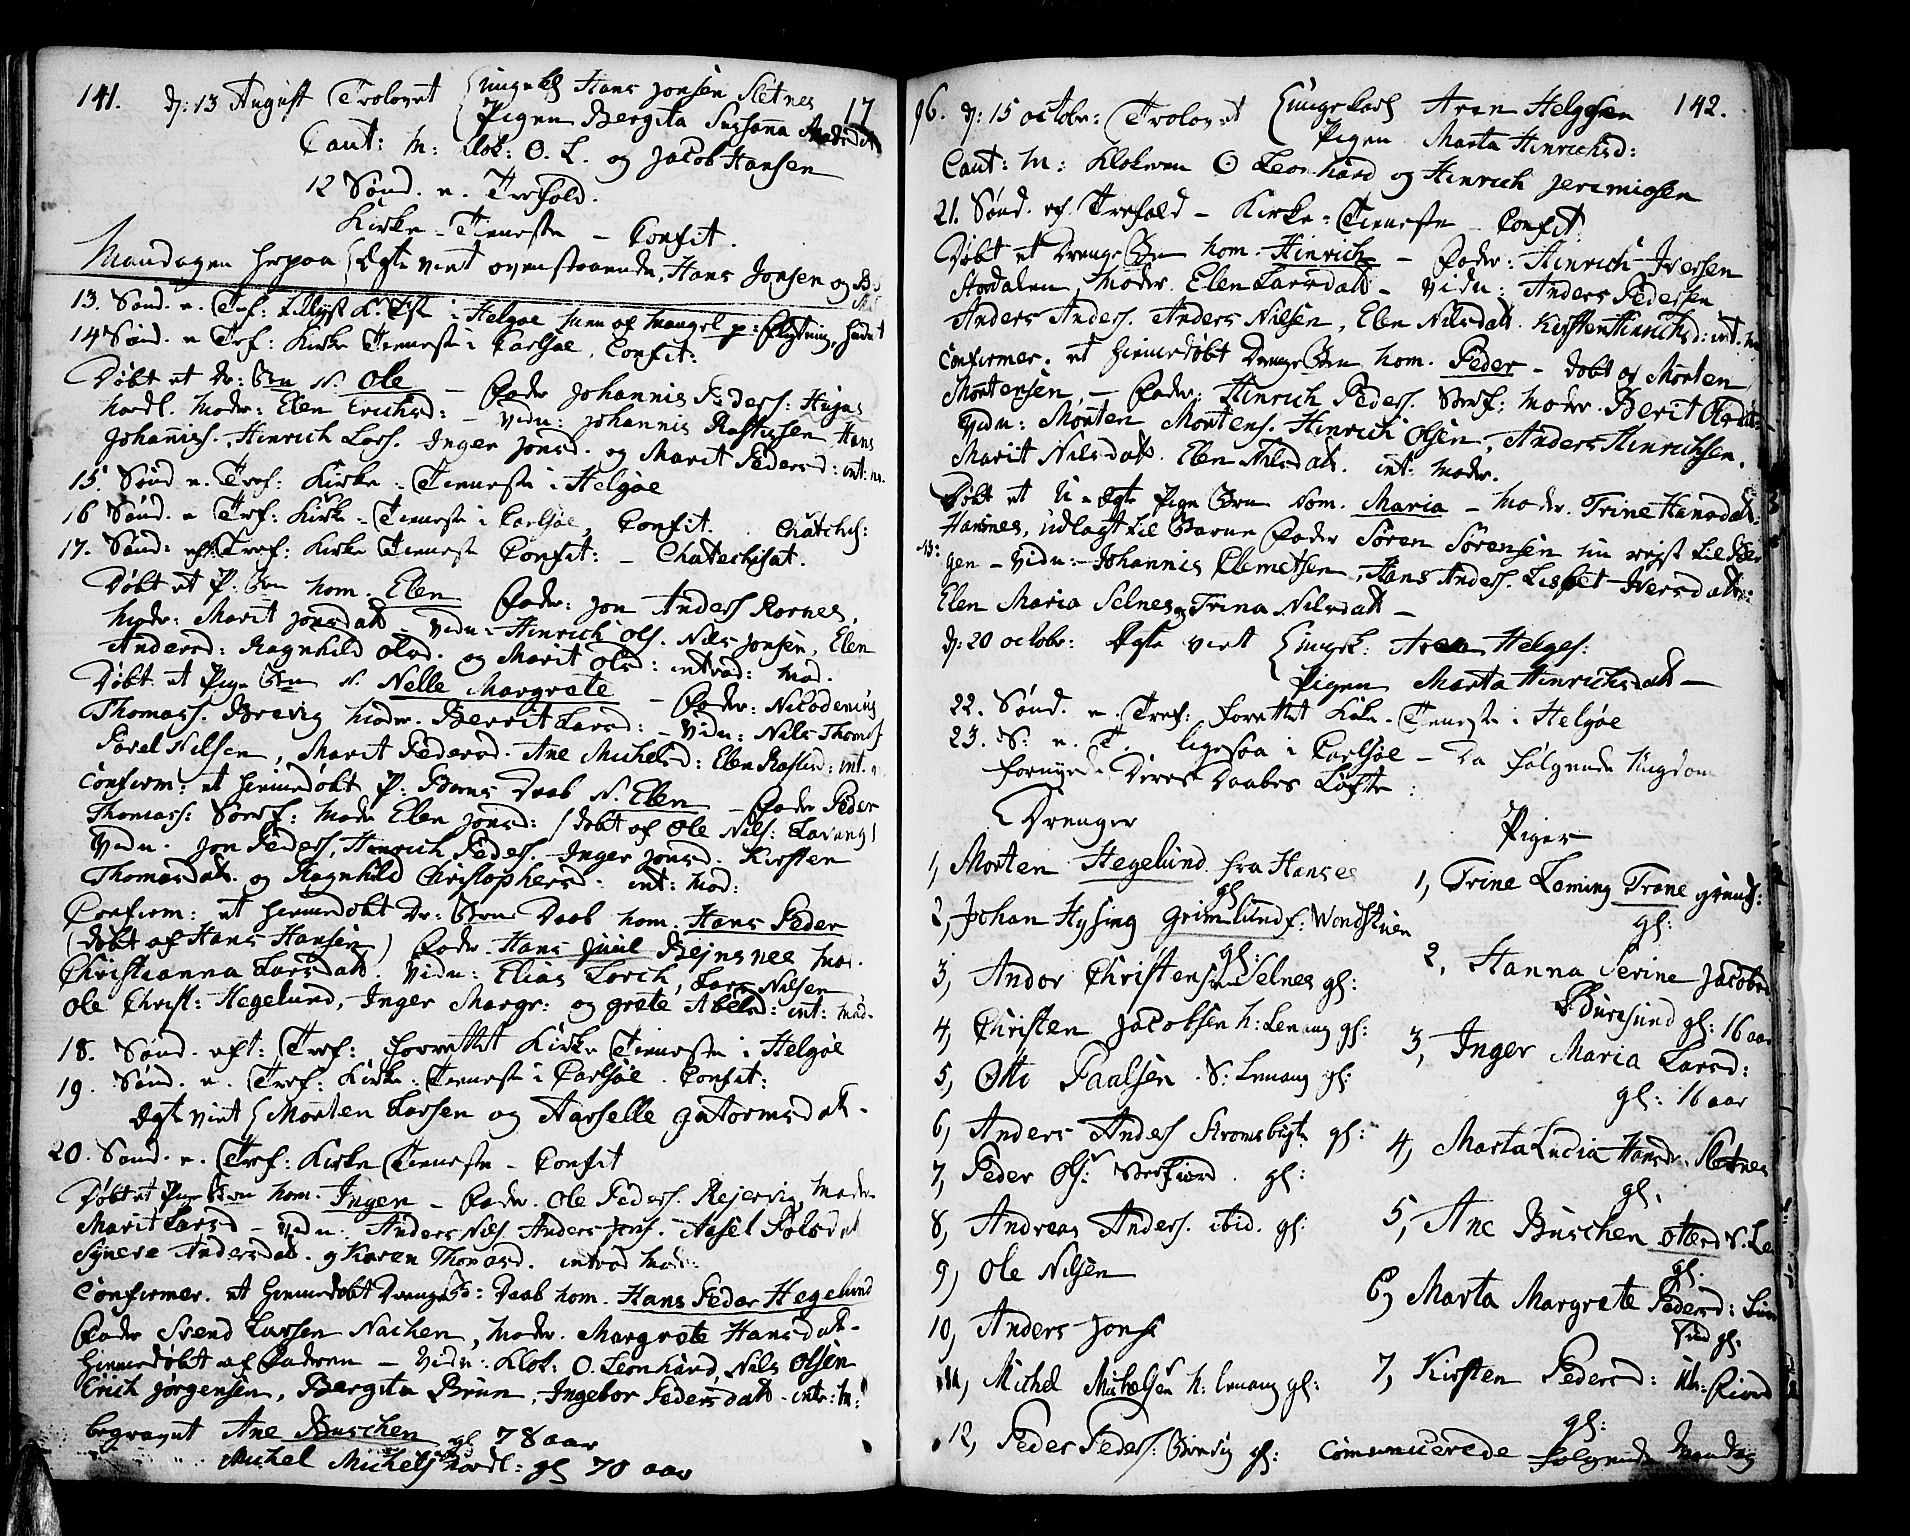 141. d: 13 August Trolovet Ungkl Hans Jonsen Sletnes 17
Pigen Bergita Susanna Andersdatt
Caut: M: Klok: O. L. og Jacob Hansen
12 Sønd. e. Trefold.
Kirke-Tieneste - Confit.
Mandagen herpaa Egte viet ovenstaaende, Hans Jonsen og
13. Sønd. e. Tref: i Helgøe af Mangel
14 Sønd. e Tref: Kirke Tieneste i Carlsøe, Confit:
Døbt et Dr: Brn N. Ole - Fader Johannis Peders:
Nordl. Moder: Elen Erichsd: - vidn: Johannis Rasmusen Hans
Johaniss. Hinrich Lars. Inger Jonsd. og Marit Pedersd: int: m.
15. Sønd e. Tref: Kirke-Tieneste i Helgøe
16 Sønd. e Tref: Kirke-Tieneste i Carlsøe, Confit. Chatehis:
17. Sønd: eft Tref: Kirke Tieneste Confit: - Chatechisat.
Døbt et P: Brn hom. Elen Fader: Jon Anders Kornes,
Moder: Marit Jonsdatt - vidn: Hinrich Ols. Nils Jonsen, Elen
Andersd: Ragnhild Olsd. og Marit Olsd: introd: Mod.
Døbt et Pige Brn N. Nelle Margrete - Fader: Nicodemus
Thomass. Brevig Moder. Berrit Larsd: - vidn: Nils Thomas
Povel Nilsen, Marit Pedersd. Ane Michelsd: Elen Rasmusd: int.
Confirm: et hiemedøbt P: Børns Daab N. Elen - Fader Peder
Thomass: Sørf: Moder Elen Jonsd: (døbt af Ole Nils: Lavang)
Vidn. Jon Peders, Hinrich Peders. Inger Jonsd. Kirsten
Thomasdatt. og Ragnhild Christophersd. int: Mod:
Confirm: et hiemedøbt Dr: Brns Daab hom. Hans Peder
(døbt af Hans Hansen) Fader. Hans Juul Bejnsnes Mod.
Christianna Larsdatt. Vidn: Elias Lorch, Lars Nilsen
Ole Christ: Hegelund, Inger Margr: og Grete Abelsd: int: Mod.
18. Sønd. eft: Tref: forrettet Kirke Tieneste i Helgøe
19. Sønd. e. Tref: Kirke-Tieneste i Carlsøe. Confit:
Egte viet Morten Larsen og Aarselle Gutormsdatt.
20. Sønd. e. Tref: Kirke Tieneste - Confit
Døbt et Pige Brn hom. Inger - Fader. Ole Peders. Rejervig, Moder
Marit Larsd - vidn: Anders Nils. Anders Jons. Assel Polsdat
Synere Andersdat. og Karen Thomasd. introd Mod:
Confirmer. et hiemedøbt Drenge B: Daab hom. Hans Peder Hegelund
Fader Svend Larsen Nachen, Moder. Margrete Hansdatt.
hiemedøbt af Faderen - Vidn: Klok: O. Leonhard, Nils Olsen
Erich Jørgensen, Bergita Brun, Ingebor Pedersdatt - intr: M:
begravet Ane Buschen gl 78 aar
Michel Michels Nordl: gl 70 aar
96. d: 15 octobr: Trolovet Ungekarl Aren Helgesen 142.
Pigen Marta Hinrichsd:
Caut: M: Klokeren O Leonhard og Hinrich Jeremiasen
21. Sønd. ef. Trefold - Kirke-Tieneste Confit:
Døbt et Drenge Brn hom. Hinrich - Fader: Hinrich Iversen
Stordalen, Moder. Elen Larsdatt - Vidn: Anders Pedersen
Anders Anders. Anders Nilsen, Elen Nilsdatt. Kirsten Hinrichsd: int. M
Confirmer. et hiemedøbt Drenge Brn hom. Peder - døbt af Morten
Mortensen, - Fader: Hinrich Peders. Sørf: Moder. Berit Olsdatt
Vidn: Morten Mortens. Hinrich Olsen, Anders Hinrichsen,
Marit Nilsdatt. Elen Nilsdatt. int: Moder.
Døbt et U-Egte Pige Brn Nom. Maria - Moder. Trine Hansdatt:
Hansnes, udlagt til Barne Fader Søren Sørensen nu rejst til Ber
gen - Vidn: Johannis Clemetsen, Hans Anders. Lisbet Iversdatt:
Elen Maria Selnes og Trina Nilsdatt -
d: 20 octobr: Egte viet Ungk: Aren Helges:
Pigen Marta Hinrichsdatt -
22. Sønd. e. Tref: forrettet Kirke-Tieneste i Helgøe
23. S: e. T. ligesaa i Carlsøe - Da følgende Ungdom
fornyede Deres Daabes Løfte:
Drenger
1, Morten Hegelund fra Hansnes
gl
2, Johan Hysing Grimelund f: Wondstuen
gl:
3, Andor Christensen Selnes gl:
4, Christen Jacobsen N: Lenang gl:
5, Otte Paalsen S: Lenang gl:
6, Anders Anders Stromsbugte gl:
7, Peder Ols: Sørfiord. gl:
8, Andreas Anders. ibid. gl:
9, Ole Nilsen
10, Anders Jonse
11, Michel Michelsen N: Lenang gl:
12, Peder Peders: gl:
Piger
1, Trine Loming Trane Grunds:
gl:
2, Hanna Serine Jacobsd
Buresund gl: 16 aar
3, Inger Maria Larsd:
gl: 16 aar
4, Marta Lucia Hansd. Sletnes
gl.
5, Ane Buschen Ottersd S. Le
gl.
6, Marta Margrete Pedersd: Lan
sund gl.
7, Kirsten Pedersd: Ul: Fiord
gl:
Comunicerede følgende Mandag